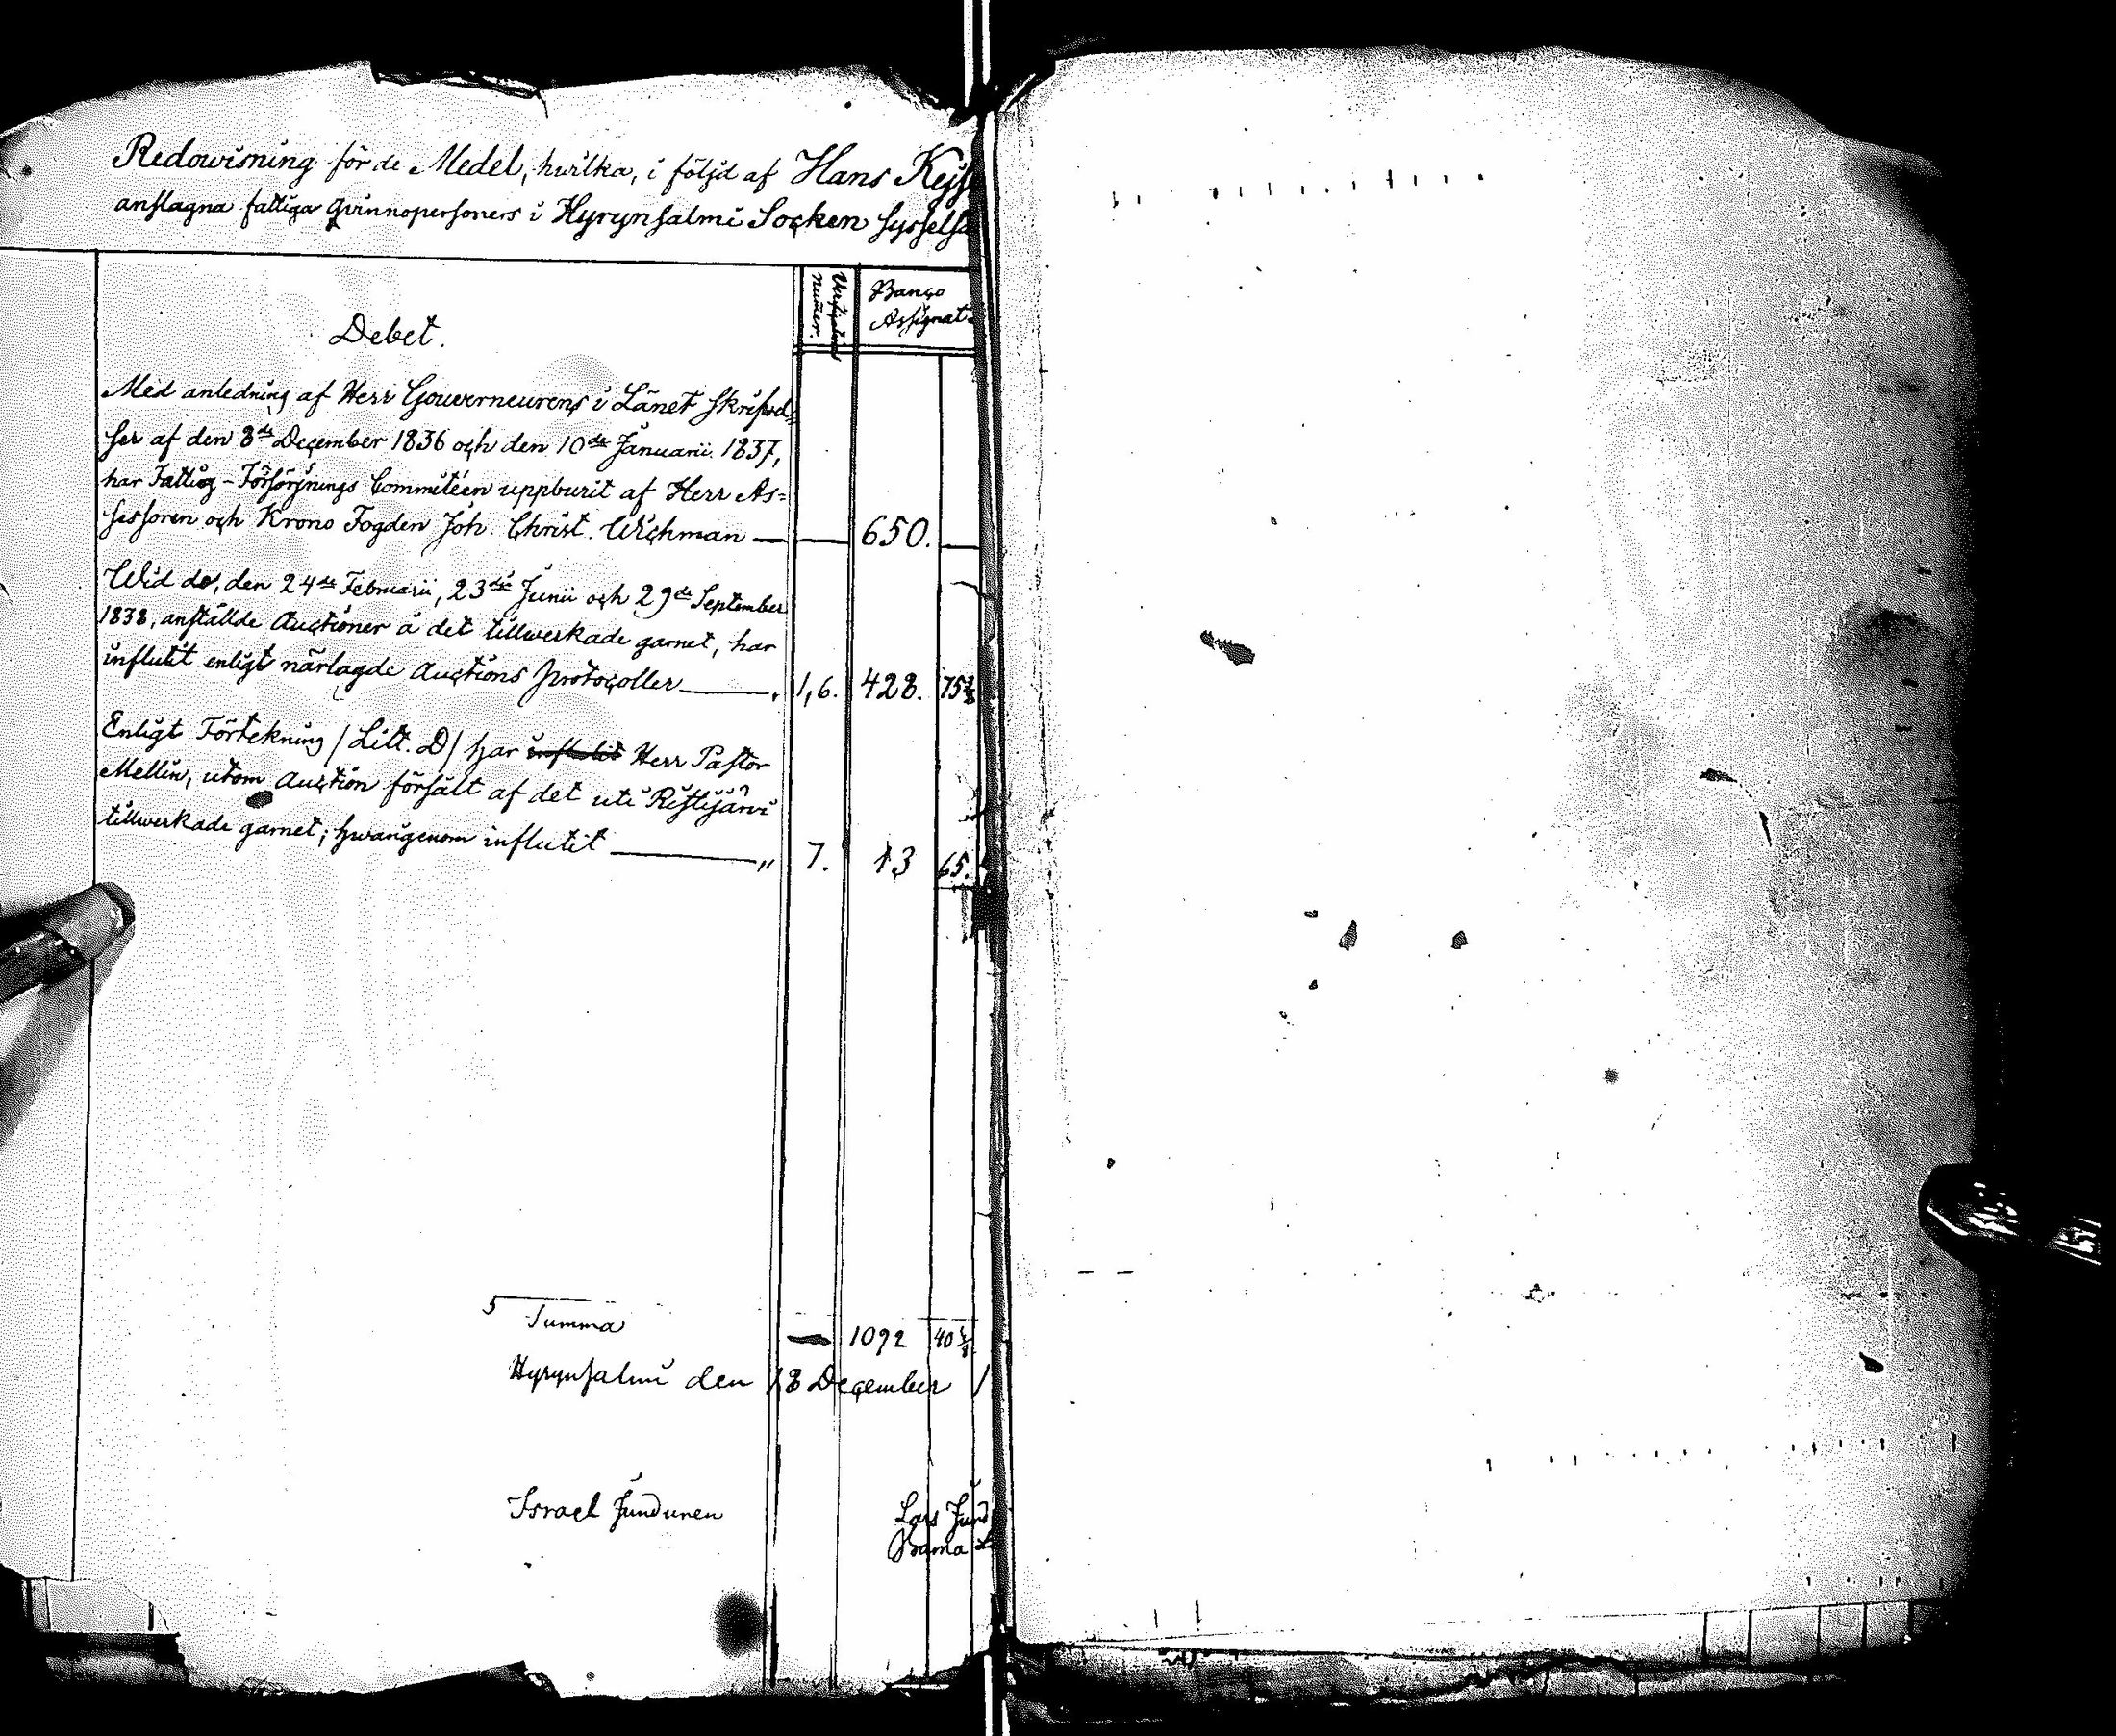 Redowisning för de Medel, hwilka, i följd af Hans Kejs
anslagna fattiga qvinnopersoners i Hyrynsalmi Socken sysselsä
Verifications
numer.
Banco
Assignat.
Debet.
Med anledning af Herr Gouverneurens i Länet skrifwel„
ser af den 8de December 1836 och den 10de Januarii 1837,
har Fattig-Försörjnings Committéen uppburit af Herr As=
sessoren och Krono Fogden Joh. Christ. Wichman — — 650. —
Wid de, den 24de Februarii, 23de Junii och 29de September
1838, anställde Auctioner å det tillwerkade garnet, har
influtit enligt närlagde Auctions Protocoller — 1,6. 428. 75
Enligt Förtekning /Litt. D/ har influtit Herr Pastor
Mellin, utom Auction försålt af det uti Ristijärwi
tillwerkade garnet; hwarigenom influtit — „ 7. 13 65.
Summa — 1092 40
Hyrynsalmi den 18 December 1
Israel Jundunen
Lars Jund